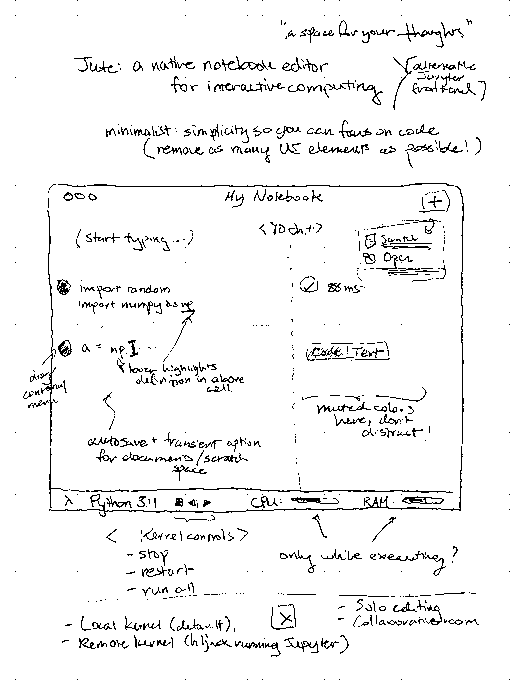 "a space for your thoughts"
Jute: a native notebook editor
for interactive computing
(alternate
Jupyter
frontend)
minimalist: simplicity so you can focus on code
(remove as many UI elements as possible!)
My Notebook
+
(start typing...)
Open
import random
import numpy as np
88 ms
a = np.
hover highlights
definition in above
cell
Code | Text
drag
menu
muted colors
here, don't
distract!
autosave + transient option
for documents/scratch
space
λ Python 3.11
CPU:
RAM
< Kernel controls >
- stop
- restart
- run all
only while executing?
- Local kernel (default),
- Remote kernel (hijack running Jupyter)
- Solo editing
- Collaborative room